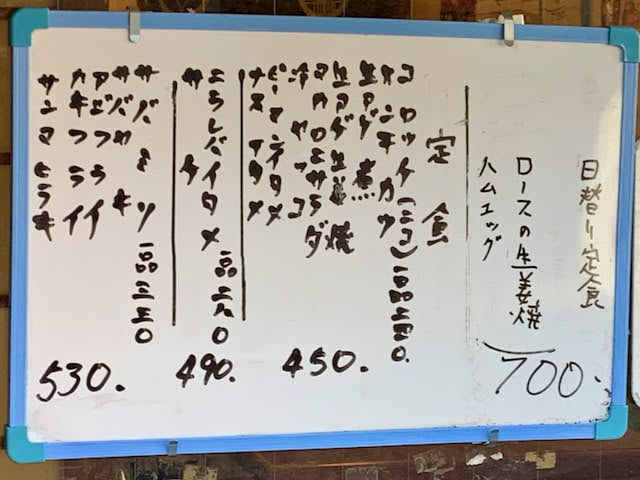 日替り定食
ロースの生姜焼
ハムエッグ
700.
定食
コロッケ(ニコ)一品二四〇.
メンチカツ
生アゲ煮
生アゲ生姜焼
マカロニサラダ
冷ヤッコ
ピーマンイタメ
ナスイタメ
450.
ニラレバイタメ 一品二八〇
サケ
490.
サバミソ 一品三五〇
サバヤキ
アジフライ
カキフライ
サンマヒラキ
530.